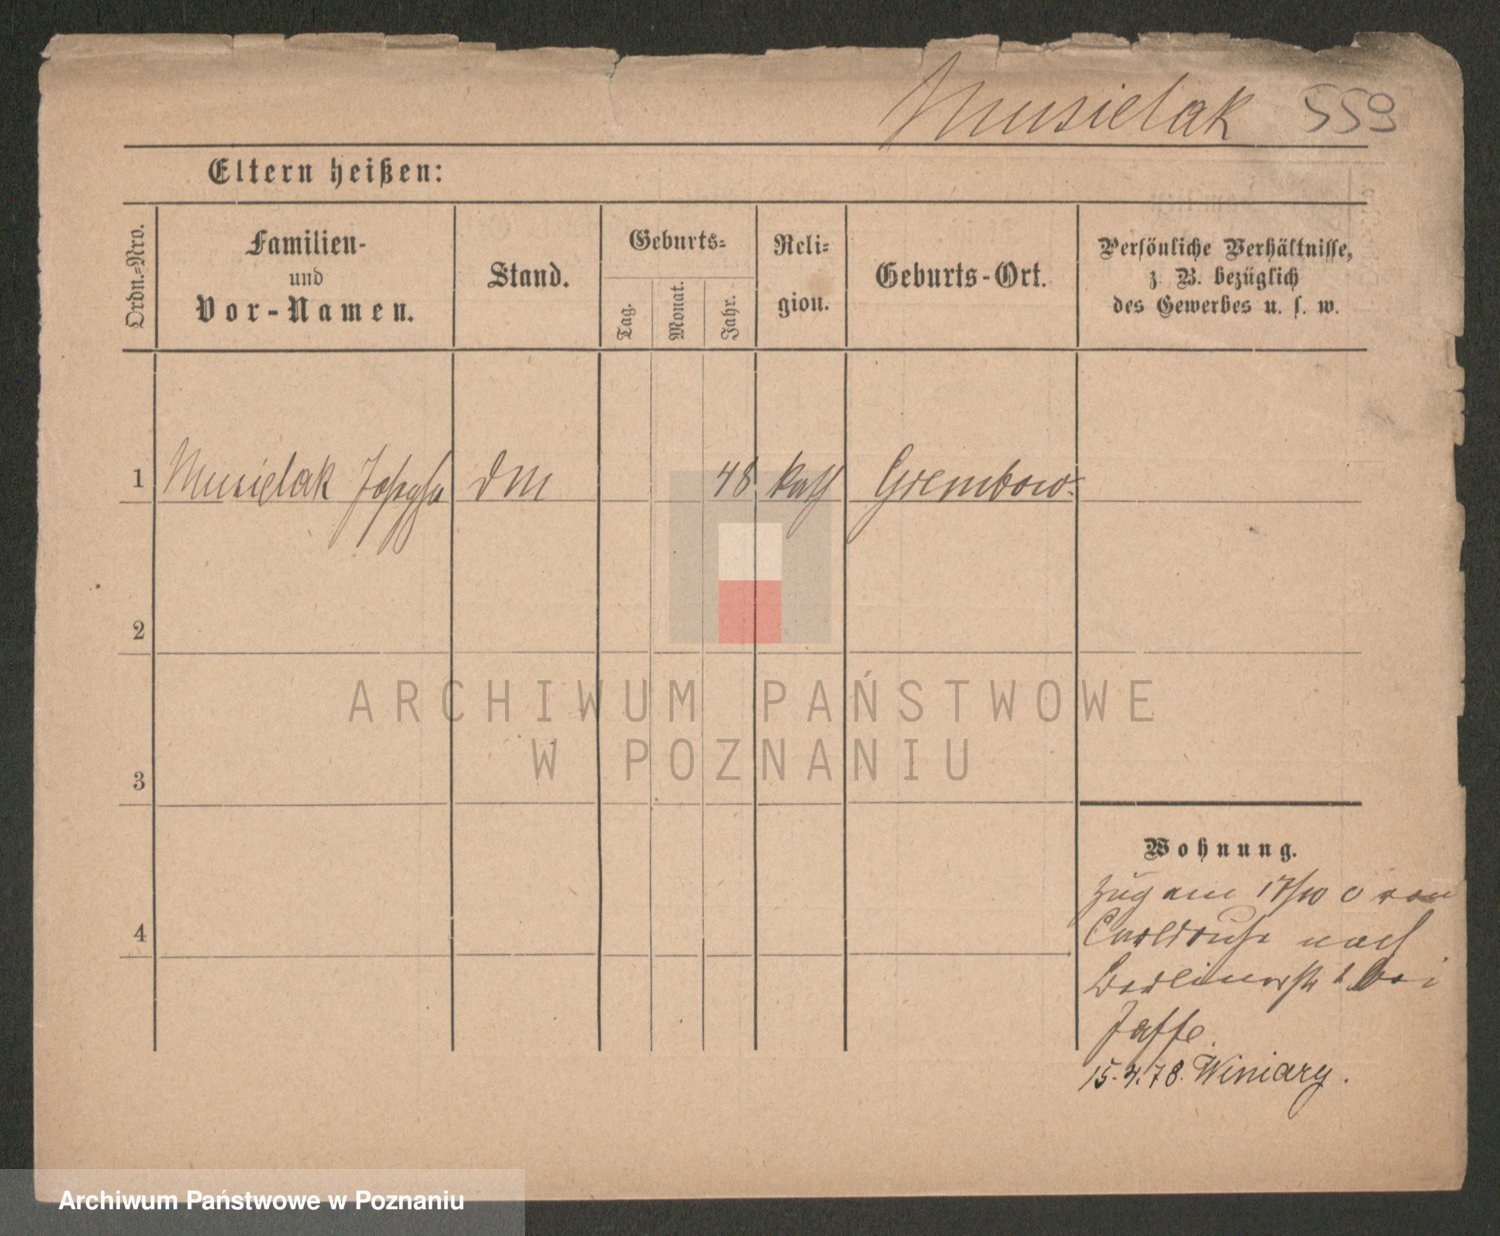 Musielak 559
Eltern heißen:
Ordn.=Nro.
Familien-
und
Vor-Namen.
Stand.
Geburts=
Tag.
Monat.
Jahr.
Reli=
gion.
Geburts-Ort.
Persönliche Verhältnisse,
z. B. bezüglich
des Gewerbes u. s. w.
1 Musielak Josepha DM 48 kath Grembow
2
3
4
ARCHIWUM PAŃSTWOWE
W POZNANIU
Wohnung.
Zug am 17/10 von
nach
Berlinerstr 1 bei
Jaffe.
15.4.78. Winiary.
Archiwum Państwowe w Poznaniu